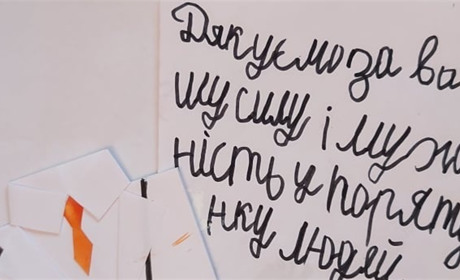 Дякуємо за ва
шу силу і муж
ність у поряту
нку людяй